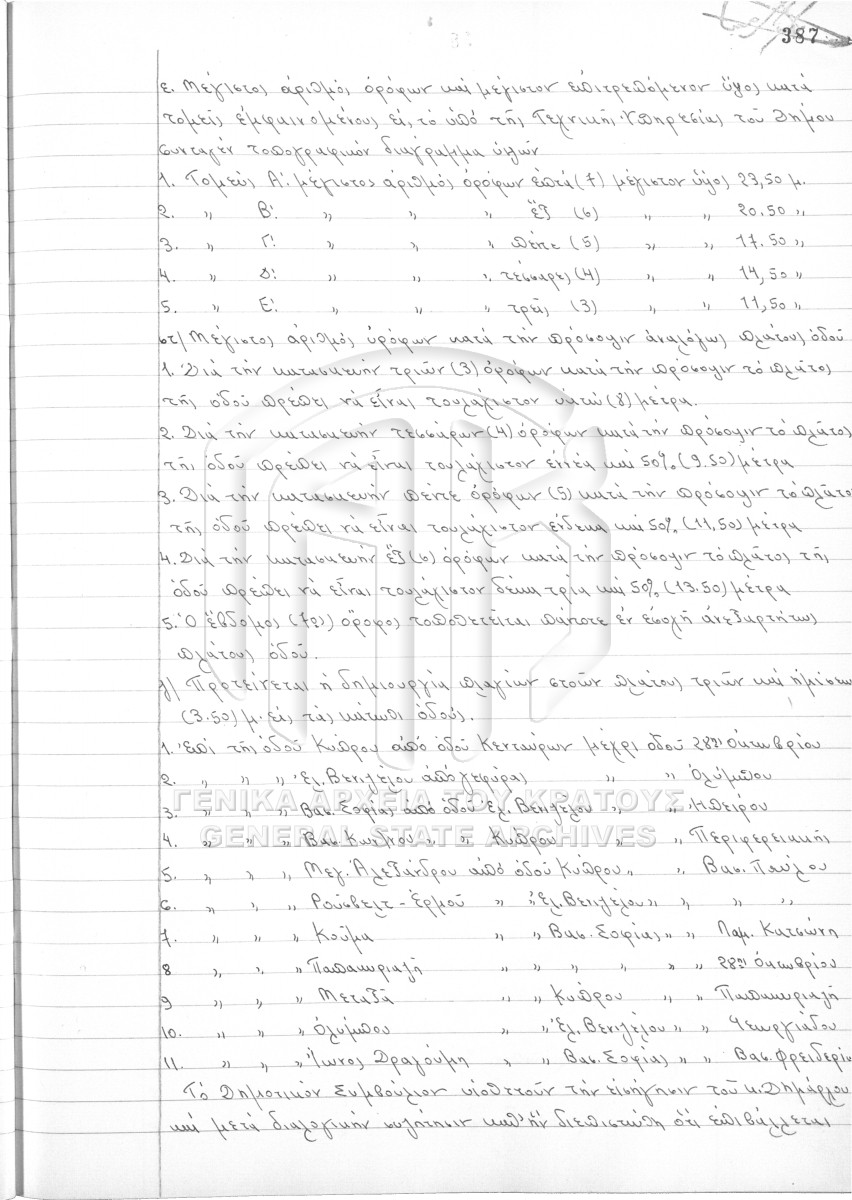 387
ε. Μέγιστος ἀριθμός ὀρόφων καί μέγιστον ἐπιτρεπόμενον ὕψος κατά
τομεῖς ἐμφαινομένους εἰς τό ὑπό τῆς Τεχνικῆς Ὑπηρεσίας τοῦ Δήμου
συνταγέν τοπογραφικόν διάγραμμα ὑψῶν
1. Τομεύς Α'. μέγιστος ἀριθμός ὀρόφων ἑπτά (7) μέγιστον ὕψος 23,50 μ.
2. " Β'. " " " ἕξ (6) " " 20.50 "
3. " Γ'. " " " πέντε (5) " " 17.50 "
4. " Δ'. " " " τέσσαρες (4) " " 14,50 "
5. " Ε'. " " " τρεῖς (3) " " 11,50 "
στ/ Μέγιστος ἀριθμός ὀρόφων κατά τήν πρόσοψιν ἀναλόγως πλάτους ὁδοῦ
1. Διά τήν κατασκευήν τριῶν (3) ὀρόφων κατά τήν πρόσοψιν τό πλᾶτος
τῆς ὁδοῦ πρέπει νά εἶναι τουλάχιστον ὀκτώ (8) μέτρα.
2. Διά τήν κατασκευήν τεσσάρων (4) ὀρόφων κατά τήν πρόσοψιν τό πλᾶτος
τῆς ὁδοῦ πρέπει νά εἶναι τουλάχιστον ἐννέα καί 50% (9.50) μέτρα
3. Διά τήν κατασκευήν πέντε ὀρόφων (5) κατά τήν πρόσοψιν τό πλᾶτος
τῆς ὁδοῦ πρέπει νά εἶναι τουλάχιστον ἕνδεκα καί 50% (11,50) μέτρα
4. Διά τήν κατασκευήν ἕξ (6) ὀρόφων κατά τήν πρόσοψιν τό πλᾶτος τῆς
ὁδοῦ πρέπει νά εἶναι τουλάχιστον δέκα τρία καί 50% (13.50) μέτρα
5. Ὁ ἕβδομος (7ος) ὄροφος τοποθετεῖται πάντοτε ἐν ἐσοχῇ ἀνεξαρτήτως
πλάτους ὁδοῦ.
ζ/ Προτείνεται ἡ δημιουργία πλαγίων στοῶν πλάτους τριῶν καί ἡμίσεως
(3.50) μ. εἰς τάς κάτωθι ὁδούς.
1. Ἐπί τῆς ὁδοῦ Κύπρου ἀπό ὁδοῦ Κενταύρων μέχρι ὁδοῦ 28ης Ὀκτωβρίου
2. " " " Ἐλ. Βενιζέλου ἀπό γεφύρας " " Ὀλύμπου
ΓΕΝΙΚΑ ΑΡΧΕΙΑ ΤΟΥ ΚΡΑΤΟΥΣ
3. " " " Βασ. Σοφίας ἀπό ὁδοῦ Ἐλ. Βενιζέλου " " Ἠπείρου
GENERAL STATE ARCHIVES
4. " " " Βασ. Κων/νου " " Κύπρου " " Περιφερειακῆς
5. " " " Μεγ. Ἀλεξάνδρου ἀπό ὁδοῦ Κύπρου " " Βασ. Παύλου
6. " " " Ροῦσβελτ - Ἑρμοῦ " " Ἐλ. Βενιζέλου " " " "
7. " " " Κούμα " " Βασ. Σοφίας " " Λαμ. Κατσώνη
8 " " " Παπακυριαζῆ " " " " " " 28ης Ὀκτωβρίου
9 " " " Μεταξᾶ " " Κύπρου " " Παπακυριαζῆ
10. " " " Ὀλύμπου " " Ἐλ. Βενιζέλου " " Γεωργιάδου
11. " " " Ἴωνος Δραγούμη " " Βασ. Σοφίας " " Βασ. Φρειδερίκ
Τό Δημοτικόν Συμβούλιον υἱοθετοῦν τήν εἰσήγησιν τοῦ κ. Δημάρχου
καί μετά διαλογικήν συζήτησιν καθ' ἥν διεπιστώθη ὅτι ἐπιβάλλεται